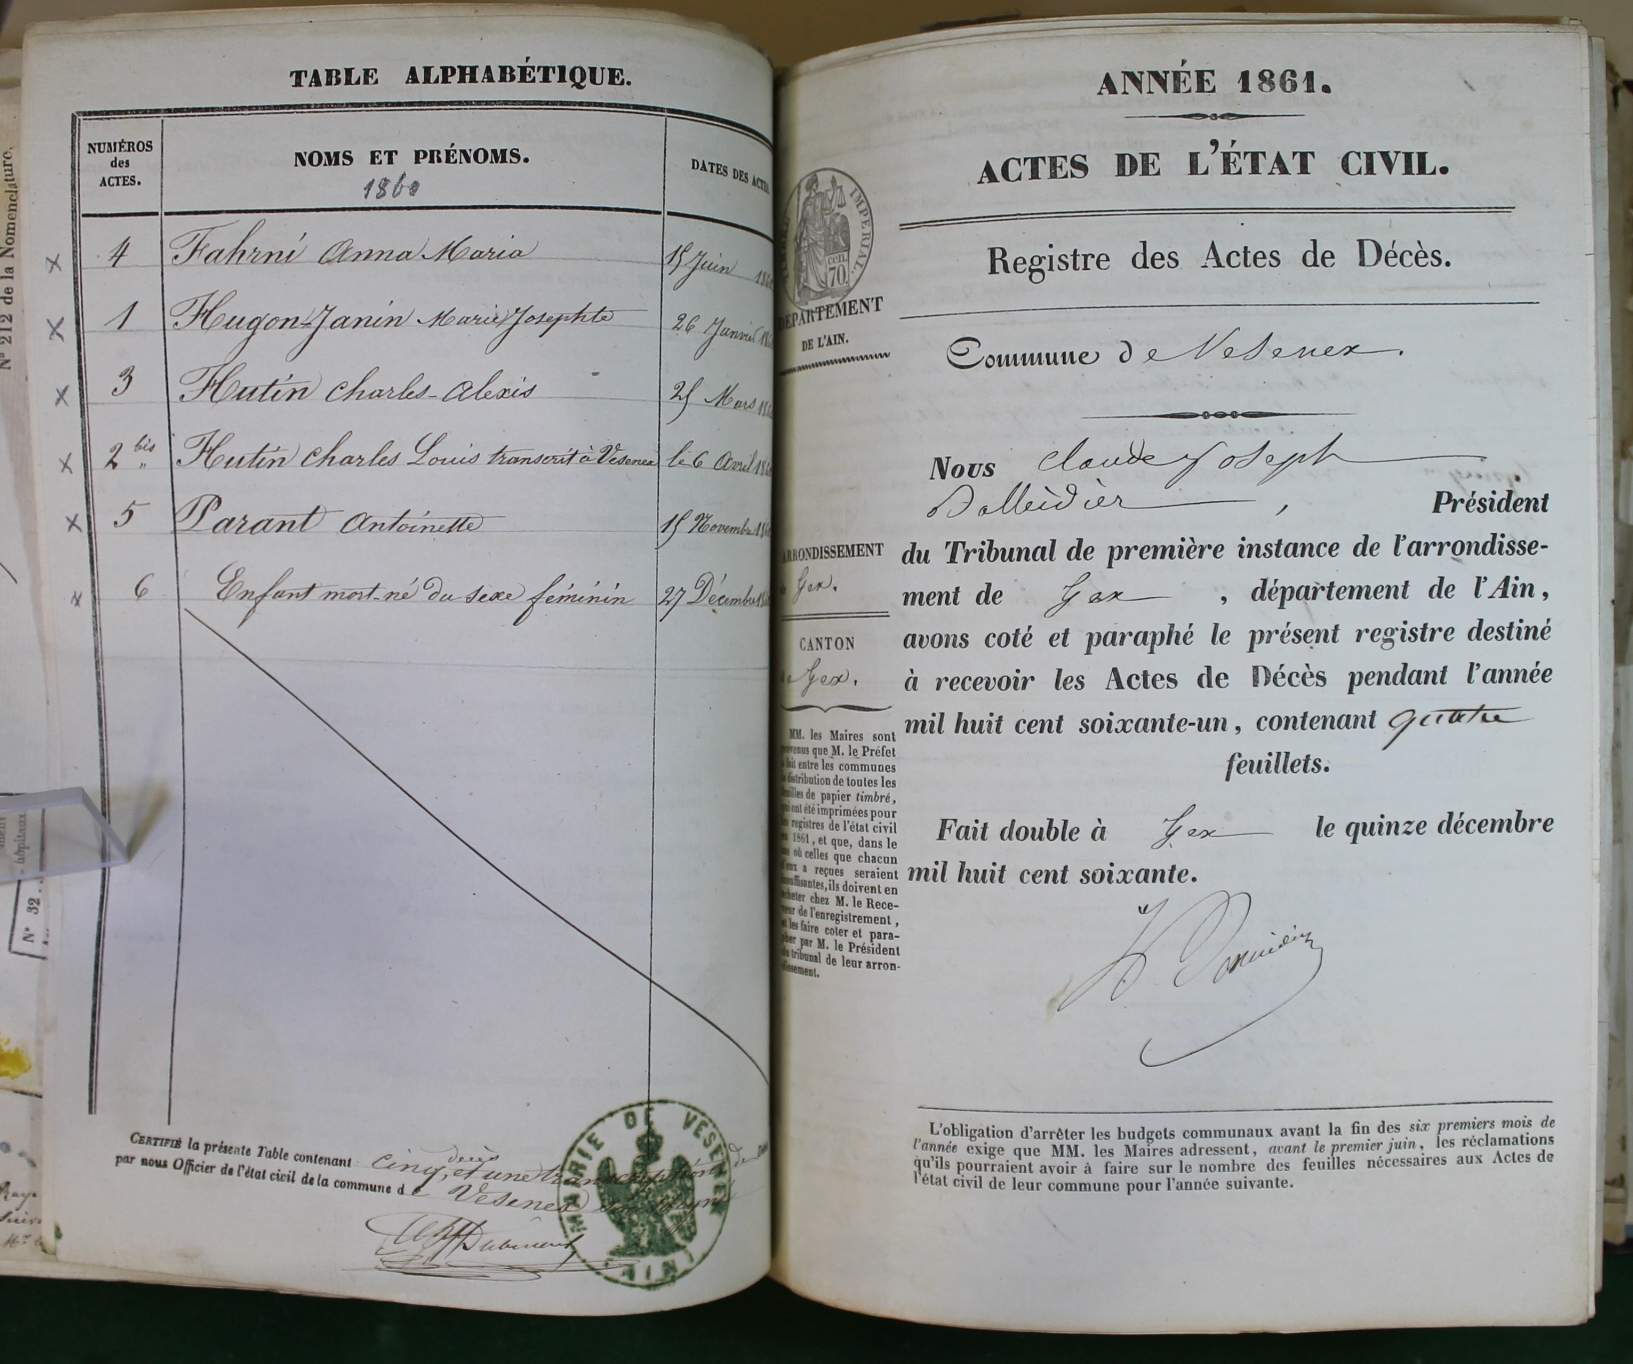 TABLE ALPHABÉTIQUE.
NUMÉROS
des
ACTES.
NOMS ET PRÉNOMS.
1860
DATES DES ACTES.
4 Fahrni Anna Maria 15 Juin 1860
1 Hugon-Janin Marie Josephte 26 Janvier
3 Hutin Charles-Alexis 25 Mars
2 bis Hutin Charles Louis transcrit à Vésenex le 6 Avril
5 Parant Antoinette 15 Novembre
6 Enfant mort-né du sexe féminin 27 Décembre
CERTIFIÉ la présente Table contenant cinq décès et une transcription
par nous Officier de l'état civil de la commune de Vésenex
MAIRIE DE VESENEX
AIN
Nº 212 de la Nomenclature.
Nº 32
ANNÉE 1861.
ACTES DE L'ÉTAT CIVIL.
Registre des Actes de Décès.
IMPERIAL
70 cen.
DÉPARTEMENT
DE L'AIN.
Commune de Vesenex.
Nous Claude Joseph
Président
du Tribunal de première instance de l'arrondisse-
ment de Gex, département de l'Ain,
avons coté et paraphé le présent registre destiné
à recevoir les Actes de Décès pendant l'année
mil huit cent soixante-un, contenant quatre
feuillets.
Fait double à Gex le quinze décembre
mil huit cent soixante.
ARRONDISSEMENT
de Gex.
CANTON
de Gex.
MM. les Maires sont
prévenus que M. le Préfet
a fait entre les communes
la distribution de toutes les
feuilles de papier timbré,
qui ont été imprimées pour
les registres de l'état civil
en 1861, et que, dans le
cas où celles que chacun
d'eux a reçues seraient
insuffisantes, ils doivent en
acheter chez M. le Rece-
veur de l'enregistrement,
et les faire coter et para-
pher par M. le Président
du tribunal de leur arron-
dissement.
L'obligation d'arrêter les budgets communaux avant la fin des six premiers mois de
l'année exige que MM. les Maires adressent, avant le premier juin, les réclamations
qu'ils pourraient avoir à faire sur le nombre des feuilles nécessaires aux Actes de
l'état civil de leur commune pour l'année suivante.